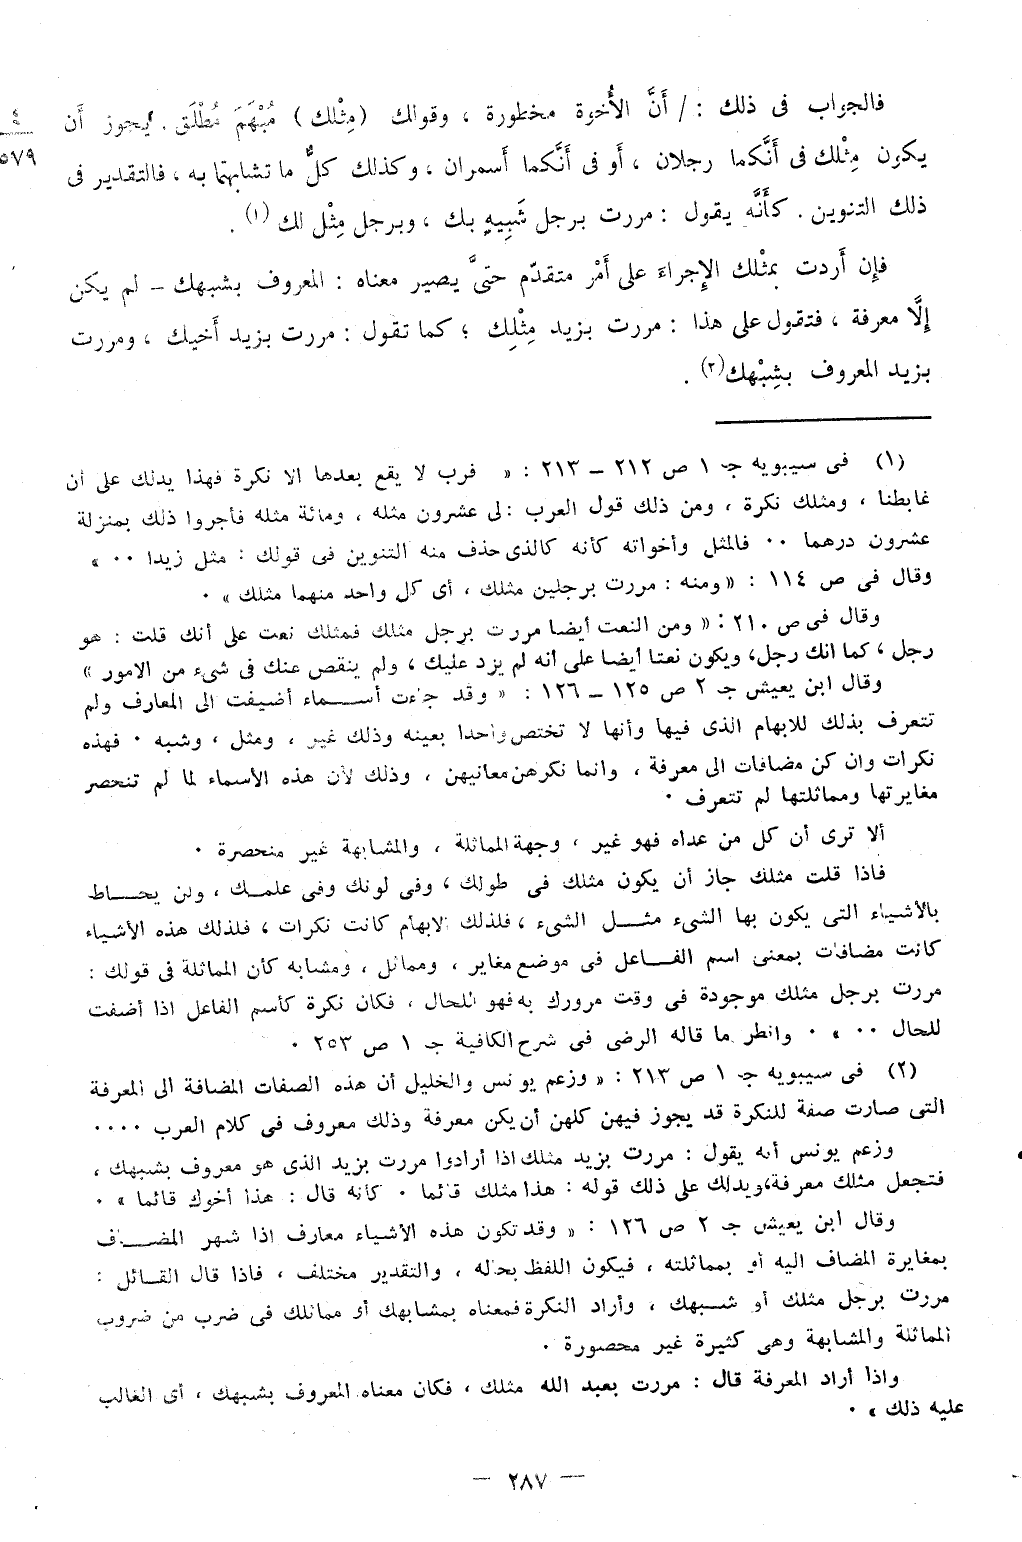 فالجواب فى ذلك : / أَنَّ الأُخوة مخطورة ، وقولك (مِثْلك) مُبْهَمَ مُطْلَق . يجوز أَن
٤
٥٧٩
يكون مِثْلك فى أَنَّكما رجلان ، أَو فى أَنَّكما أَسمران ، وكذلك كلُّ ما تشابهتما به ، فالتقدير فى
ذلك التنوين . كأَنَّه يقول : مررت برجل شَبِيهٍ بك ، وبرجل مِثْل لك (١) .
فإِن أَردت بمثْلك الإِجراءَ على أَمْر متقدّم حتىَّ يصير معناه : المعروف بشبهك – لم يكن
إِلَّا معرفة ، فتقول على هذا : مررت بزيد مِثْلِك ؛ كما تقول : مررت بزيد أَخيك ، ومررت
بزيد المعروف بشِبْهك(٢) .
(١) فى سيبويه جـ ١ ص ٢١٢ – ٢١٣ : « فرب لا يقع بعدها الا نكرة فهذا يدلك على أن
غابطنا ، ومثلك نكرة ، ومن ذلك قول العرب : لى عشرون مثله ، ومائة مثله فأجروا ذلك بمنزلة
عشرون درهما ٠٠ فالمثل وأخواته كأنه كالذى حذف منه التنوين فى قولك : مثل زيدا ٠٠ »
وقال فى ص ١١٤ : « ومنه : مررت برجلين مثلك ، أى كل واحد منهما مثلك » ٠
وقال فى ص ٢١٠ : « ومن النعت أيضا مررت برجل مثلك فمثلك نعت على أنك قلت : هو
رجل ، كما انك رجل، ويكون نعتا أيضا على أنه لم يزد عليك ، ولم ينقص عنك فى شىء من الامور »
وقال ابن يعيش جـ ٢ ص ١٢٥ – ١٢٦ : « وقد جاءت أسماء أضيفت الى المعارف ولم
تتعرف بذلك للابهام الذى فيها وأنها لا تختص واحدا بعينه وذلك غير ، ومثل ، وشبه ٠ فهذه
نكرات وان كن مضافات الى معرفة ، وانما نكرهن معانيهن ، وذلك لأن هذه الأسماء لما لم تنحصر
مغايرتها ومماثلتها لم تتعرف ٠
ألا ترى أن كل من عداه فهو غير ، وجهة المماثلة ، والمشابهة غير منحصرة ٠
فاذا قلت مثلك جاز أن يكون مثلك فى طولك ، وفى لونك وفى علمك ، ولن يحاط
بالأشياء التى يكون بها الشىء مثل الشىء ، فلذلك الابهام كانت نكرات ، فلذلك هذه الأشياء
كانت مضافات بمعنى اسم الفاعل فى موضع مغاير ، ومماثل ، ومشابه كأن المماثلة فى قولك :
مررت برجل مثلك موجودة فى وقت مرورك به فهو للحال ، فكان نكرة كأسم الفاعل اذا أضفت
للحال ٠٠ » ٠ وانظر ما قاله الرضى فى شرح الكافية جـ ١ ص ٢٥٣ ٠
(٢) فى سيبويه جـ ١ ص ٢١٣ : « وزعم يونس والخليل أن هذه الصفات المضافة الى المعرفة
التى صارت صفة للنكرة قد يجوز فيهن كلهن أن يكن معرفة وذلك معروف فى كلام العرب ٠٠٠٠
وزعم يونس أنه يقول : مررت بزيد مثلك اذا أرادوا مررت بزيد الذى هو معروف بشبهك ،
فتجعل مثلك معرفة، ويدلك على ذلك قوله : هذا مثلك قائما ٠ كأنه قال : هذا أخوك قائما » ٠
وقال ابن يعيش جـ ٢ ص ١٢٦ : « وقد تكون هذه الأشياء معارف اذا شهر المضاف
بمغايرة المضاف اليه أو بمماثلته ، فيكون اللفظ بحاله ، والتقدير مختلف ، فاذا قال القائل :
مررت برجل مثلك أو شبهك ، وأراد النكرة فمعناه بمشابهك أو مماثلك فى ضرب من ضروب
المماثلة والمشابهة وهى كثيرة غير محصورة ٠
واذا أراد المعرفة قال : مررت بعبد الله مثلك ، فكان معناه المعروف بشبهك ، أى الغالب
عليه ذلك » ٠
– ٢٨٧ –